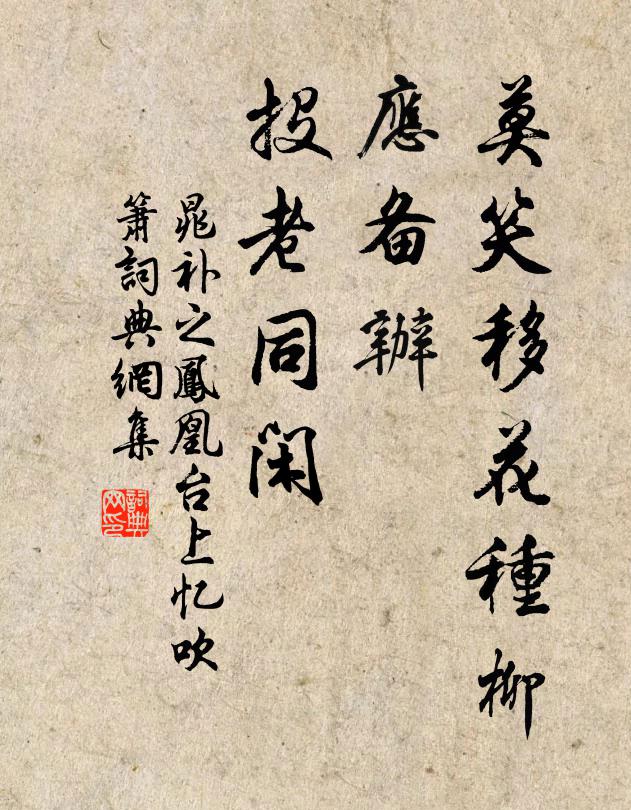 莫笑移花種柳
應备辦
投老同閑
晁补之鳳凰台上忆吹
簫詞典網集
詞典
网印